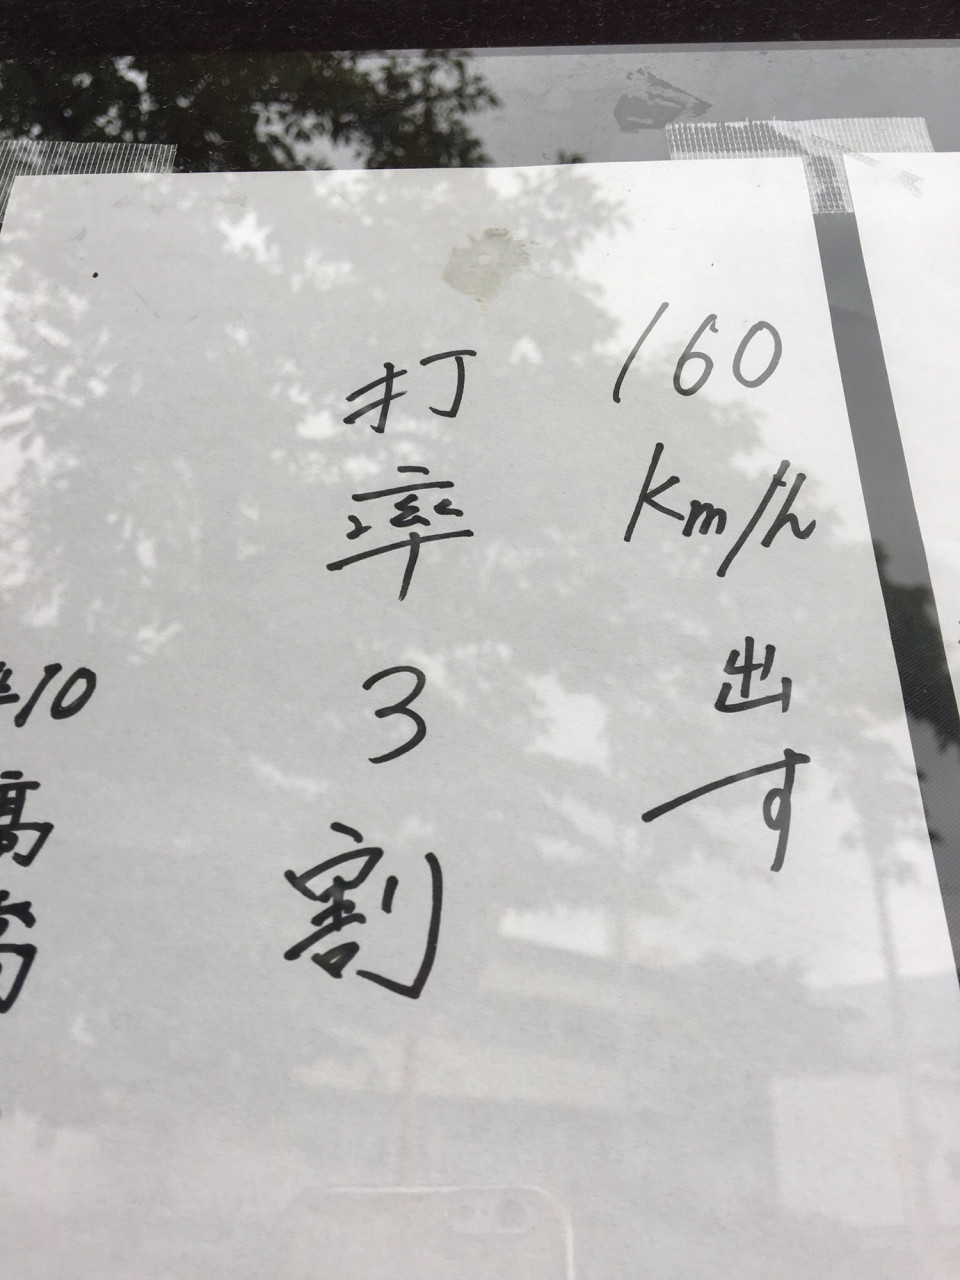 160km/h出す
打率3割
#10高橋